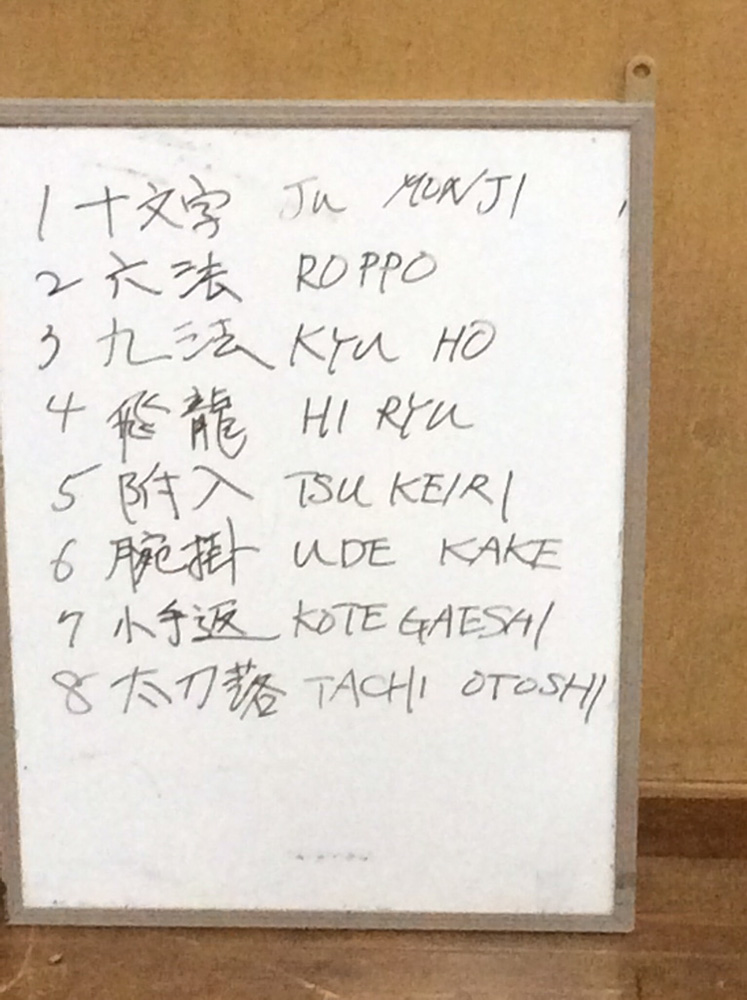 1 十文字 JU MONJI
2 六法 ROPPO
3 九法 KYU HO
4 飛龍 HI RYU
5 附入 TSUKEIRI
6 腕掛 UDE KAKE
7 小手返 KOTE GAESHI
8 太刀落 TACHI OTOSHI